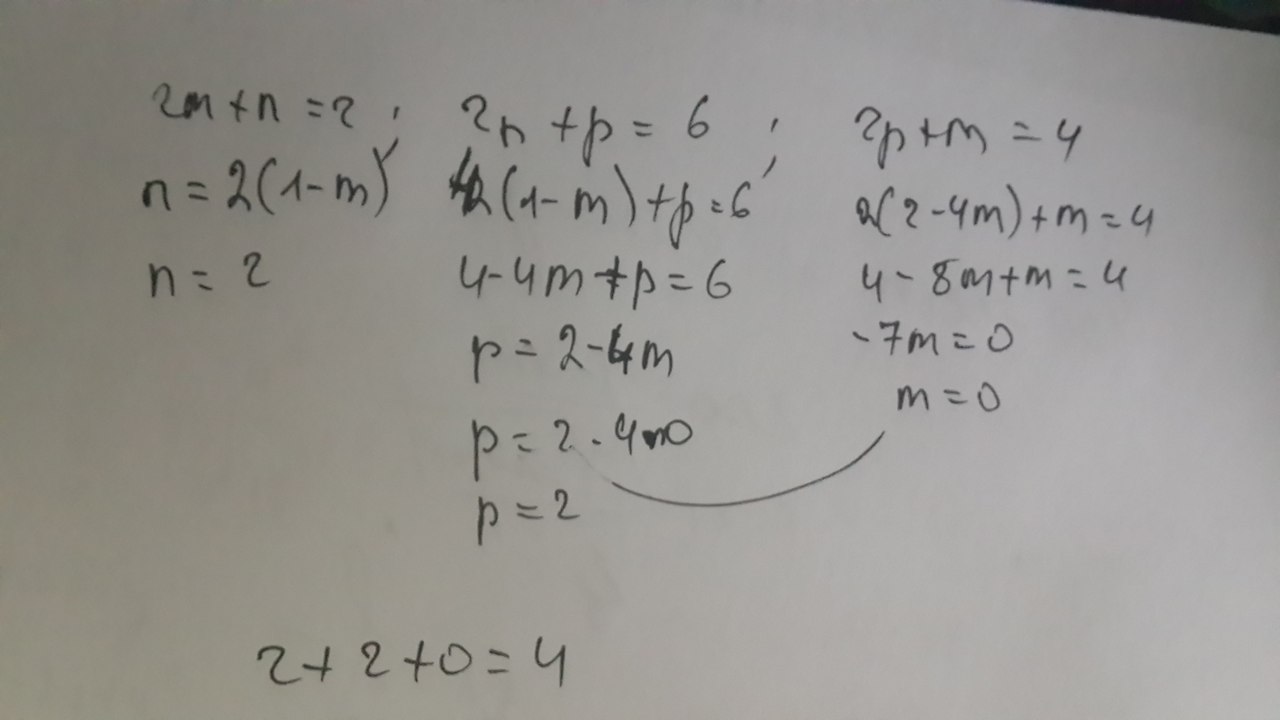 2m+n=2; 2n+p=6, 2p+m=4
n=2(1-m) 4(1-m)+p=6 2(2-4m)+m=4
n=2 4-4m+p=6 4-8m+m=4
p=2-4m -7m=0
m=0
p=2-4·0
p=2
2+2+0=4